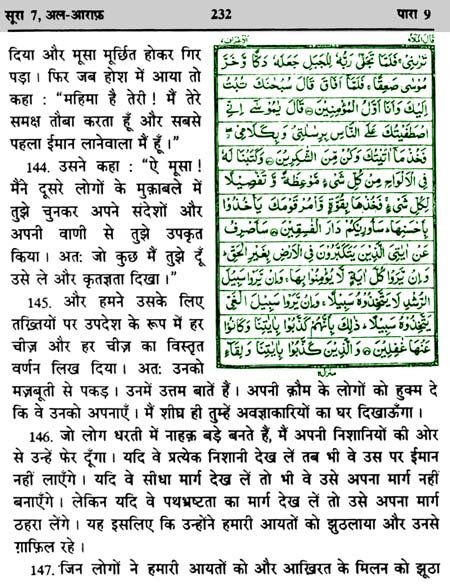 सूरा 7, अल-आराफ़
232
पारा 9
قال الملا ٩
الاعراف ٧
दिया और मूसा मूर्छित होकर गिर
पड़ा। फिर जब होश में आया तो
कहा : “महिमा है तेरी ! मैं तेरे
समक्ष तौबा करता हूँ और सबसे
पहला ईमान लानेवाला मैं हूँ।”
144. उसने कहा : “ऐ मूसा !
मैंने दूसरे लोगों के मुक़ाबले में
तुझे चुनकर अपने संदेशों और
अपनी वाणी से तुझे उपकृत
किया। अतः जो कुछ मैं तुझे दूँ
उसे ले और कृतज्ञता दिखा।”
145. और हमने उसके लिए
तख़्तियों पर उपदेश के रूप में हर
चीज़ और हर चीज़ का विस्तृत
वर्णन लिख दिया। अतः उनको
تَرٰىنِيْ ۚ فَلَمَّا تَجَلّٰى رَبُّهٗ لِلْجَبَلِ جَعَلَهٗ دَكًّا وَّخَرَّ
مُوْسٰى صَعِقًا ۚ فَلَمَّآ اَفَاقَ قَالَ سُبْحٰنَكَ تُبْتُ
اِلَيْكَ وَاَنَا اَوَّلُ الْمُؤْمِنِيْنَ ۝ قَالَ يٰمُوْسٰٓى اِنِّي
اصْطَفَيْتُكَ عَلَى النَّاسِ بِرِسٰلٰتِيْ وَبِكَلَامِيْ ۖ
فَخُذْ مَآ اٰتَيْتُكَ وَكُنْ مِّنَ الشّٰكِرِيْنَ ۝ وَكَتَبْنَا لَهٗ
فِي الْاَلْوَاحِ مِنْ كُلِّ شَيْءٍ مَّوْعِظَةً وَّتَفْصِيْلًا
لِّكُلِّ شَيْءٍ ۚ فَخُذْهَا بِقُوَّةٍ وَّاْمُرْ قَوْمَكَ يَاْخُذُوْا
بِاَحْسَنِهَا ۭ سَاُورِيْكُمْ دَارَ الْفٰسِقِيْنَ ۝ سَاَصْرِفُ
عَنْ اٰيٰتِيَ الَّذِيْنَ يَتَكَبَّرُوْنَ فِي الْاَرْضِ بِغَيْرِ الْحَقِّ ۭ
وَاِنْ يَّرَوْا كُلَّ اٰيَةٍ لَّا يُؤْمِنُوْا بِهَا ۚ وَاِنْ يَّرَوْا سَبِيْلَ
الرُّشْدِ لَا يَتَّخِذُوْهُ سَبِيْلًا ۚ وَاِنْ يَّرَوْا سَبِيْلَ الْغَيِّ
يَتَّخِذُوْهُ سَبِيْلًا ۭ ذٰلِكَ بِاَنَّهُمْ كَذَّبُوْا بِاٰيٰتِنَا وَكَانُوْا
عَنْهَا غٰفِلِيْنَ ۝ وَالَّذِيْنَ كَذَّبُوْا بِاٰيٰتِنَا وَلِقَآءِ
منزل ٢
मज़बूती से पकड़। उनमें उत्तम बातें हैं। अपनी क़ौम के लोगों को हुक्म दे
कि वे उनको अपनाएँ। मैं शीघ्र ही तुम्हें अवज्ञाकारियों का घर दिखाऊँगा।
146. जो लोग धरती में नाहक़ बड़े बनते हैं, मैं अपनी निशानियों की ओर
से उन्हें फेर दूँगा। यदि वे प्रत्येक निशानी देख लें तब भी वे उस पर ईमान
नहीं लाएँगे। यदि वे सीधा मार्ग देख लें तो भी वे उसे अपना मार्ग नहीं
बनाएँगे। लेकिन यदि वे पथभ्रष्टता का मार्ग देख लें तो उसे अपना मार्ग
ठहरा लेंगे। यह इसलिए कि उन्होंने हमारी आयतों को झुठलाया और उनसे
ग़ाफ़िल रहे।
147. जिन लोगों ने हमारी आयतों को और आख़िरत के मिलन को झूठा